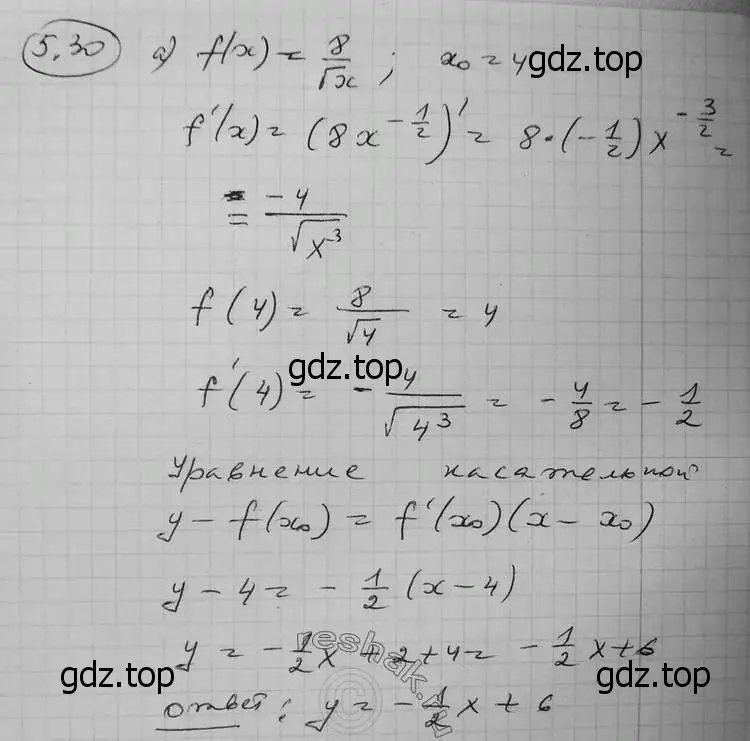 5.30 а) f(x) = 8/√x ; x₀ = 4
gdz.top
f'(x) = (8x^(-1/2))' = 8·(-1/2)x^(-3/2) =
= -4/√(x^-3)
f(4) = 8/√4 = 4
gdz.top
f'(4) = -4/√(4^3) = -4/8 = -1/2
Уравнение касательной
y - f(x₀) = f'(x₀)(x - x₀)
y - 4 = -1/2 (x - 4)
y = -1/2 x + 2 + 4 = -1/2 x + 6
gdz.top gdz.top
ответ: y = -1/2 x + 6